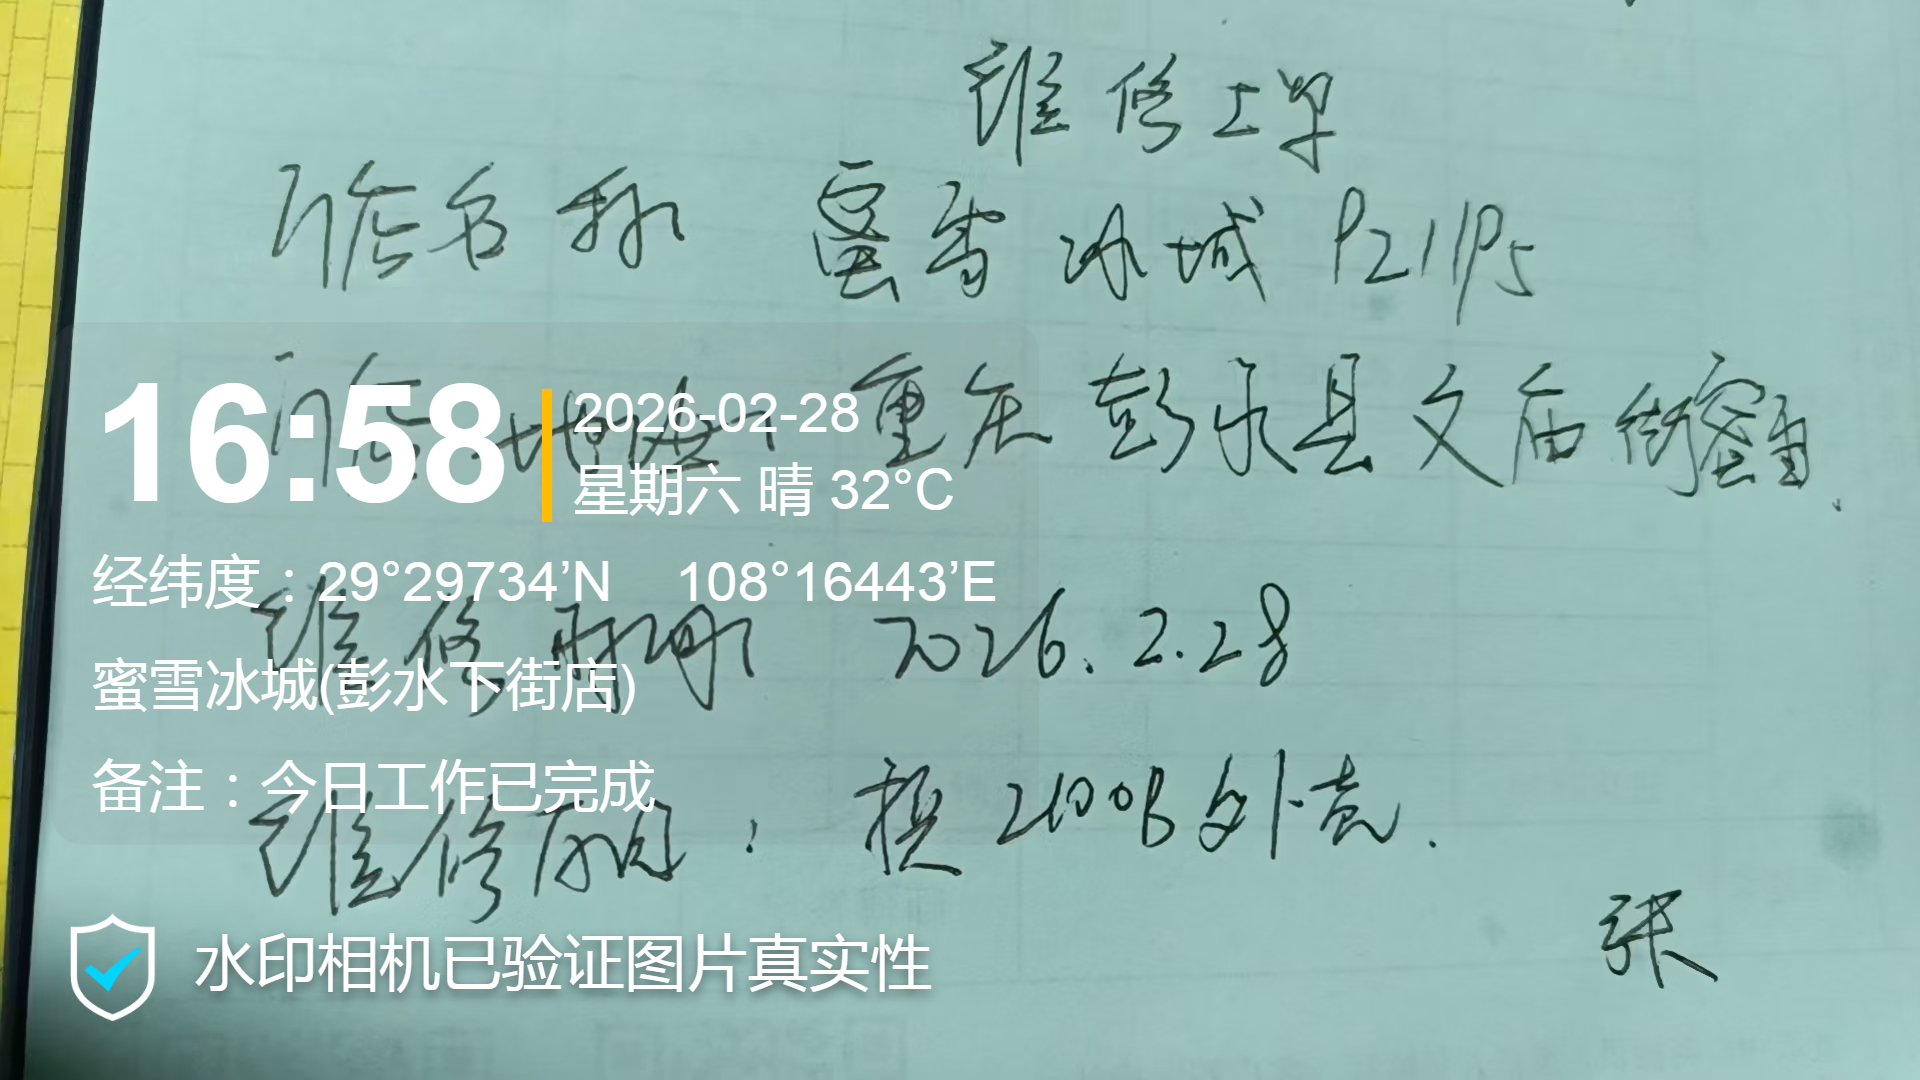 维修工单
门店名称 蜜雪冰城 P211P5
门店地址: 重庆彭水县文庙街蜜雪.
维修时间 2026.2.28
维修项目: 换2100B外壳.
张
16:58
2026-02-28
星期六 晴 32°C
经纬度:29°29734’N 108°16443’E
蜜雪冰城(彭水下街店)
备注:今日工作已完成
水印相机已验证图片真实性